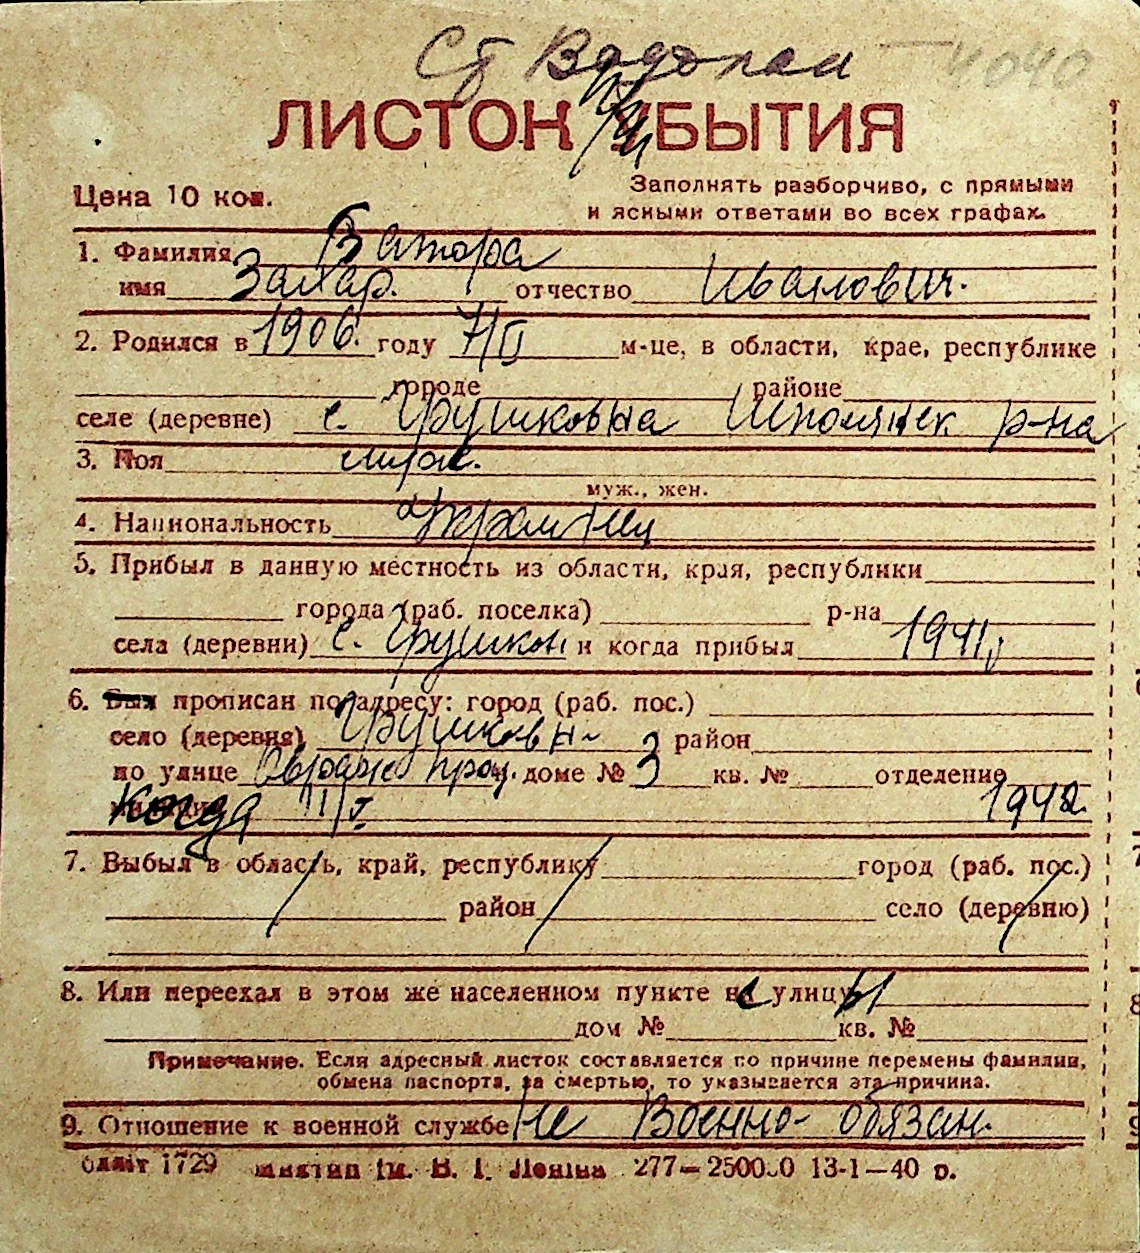 Ст Водопой 4040
ЛИСТОК УБЫТИЯ
Цена 10 коп.
Заполнять разборчиво, с прямыми
и ясными ответами во всех графах.
1. Фамилия
имя Захар. отчество Иванович.
2. Родился в 1906. году 7/II м-це, в области, крае, республике
городе районе
селе (деревне) с. Грушковка Шполянск р-на
3. Пол
муж., жен.
4. Национальность Украинец
5. Прибыл в данную местность из области, края, республики
города (раб. поселка) р-на
села (деревни) с. Грушков и когда прибыл 1941
6. Был прописан по адресу: город (раб. пос.)
село (деревня) Грушковк район 3
по улице доме № 3 кв. № отделение
когда 1942
7. Выбыл в область, край, республику город (раб. пос.)
район село (деревню)
8. Или переехал в этом же населенном пункте на улицу
дом № кв. №
Примечание. Если адресный листок составляется по причине перемены фамилии,
обмена паспорта, за смертью, то указывается эта причина.
9. Отношение к военной службе Не военно-обязан.
1729 ім. В. І. Леніна 277—2500.0 13-1—40 р.